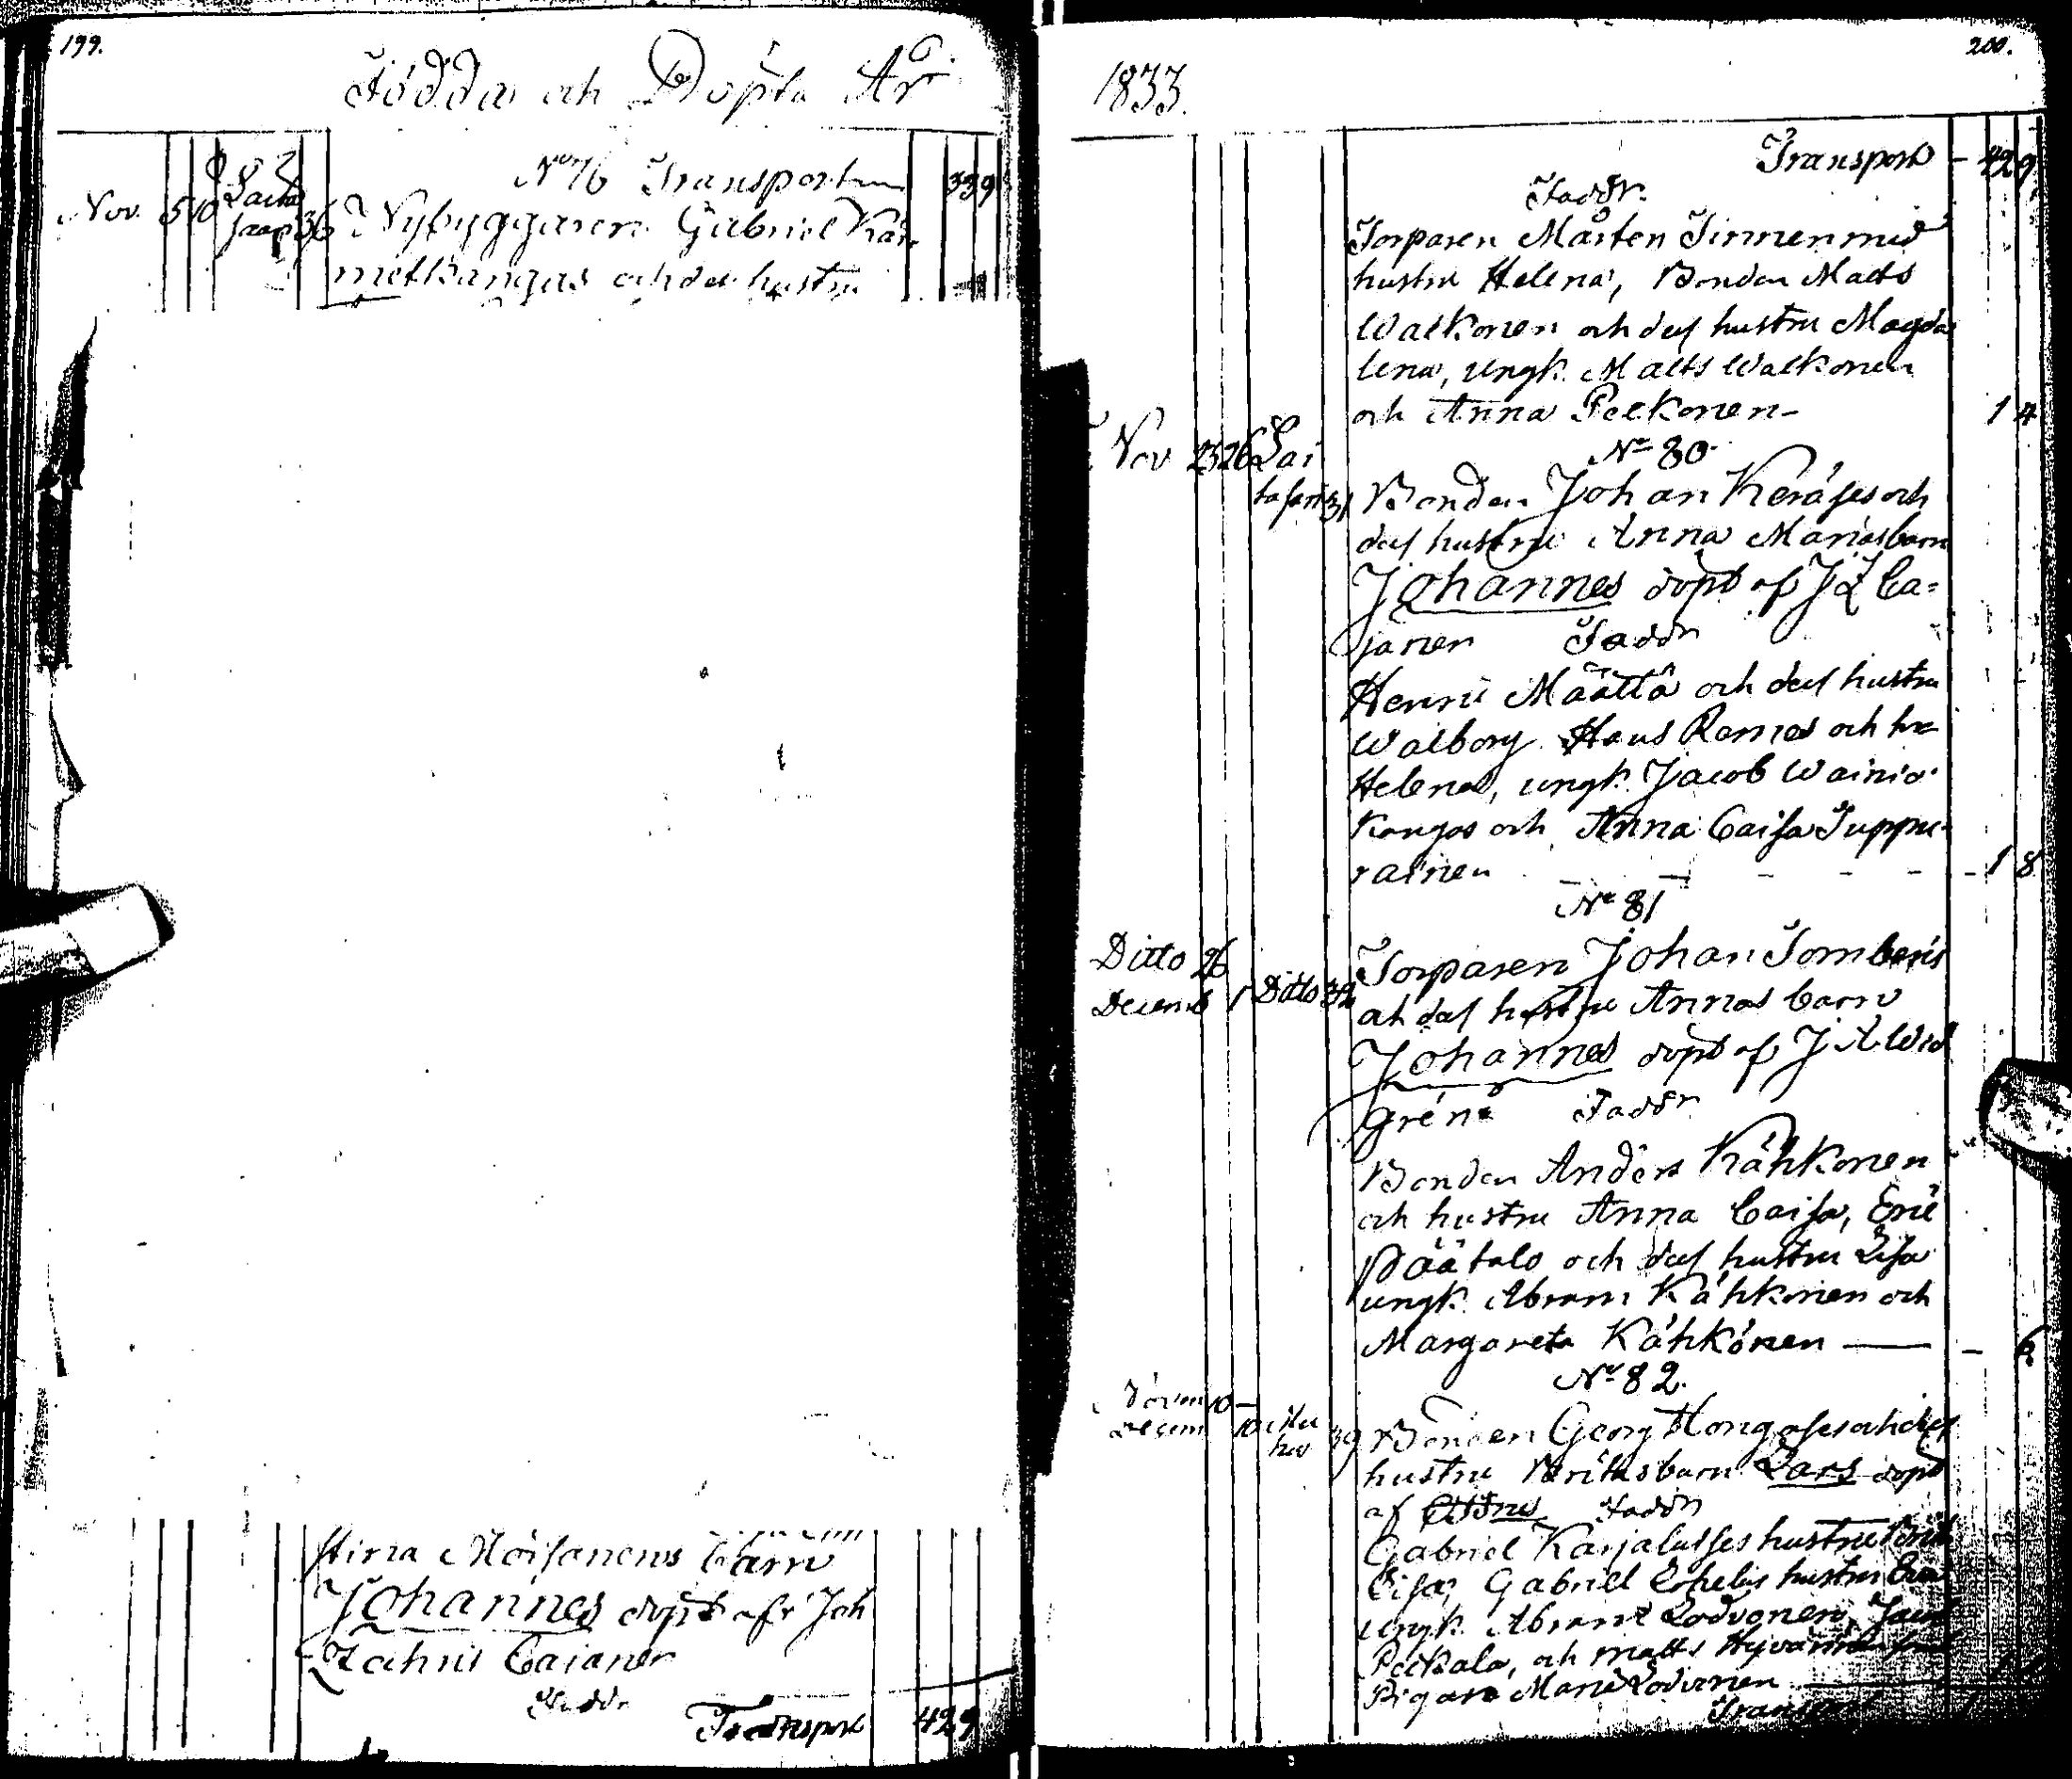 199.
Födda och Döpta År
No 76 Transport 339
Nov. 5 10 36 Nybyggaren Gabriel Kär-
metkangas och des hustru
Stina Moisanens barn
Johannes döpt af Joh
Zachris Cajaner
Faddr
Transport 429
200.
1833.
Transport - 429
Faddr.
Torparen Mårten Timmen med
hustru Helena, Bonden Matts
Walkonen och des hustru Magda
lena, Ungk. Matts Walkonen
och Anna Pelkonen - 1 4
No 80.
Nov 25 26 Lai
tasari 31 Bonden Johan Keräses och
des hustru Anna Marias barn
Johannes döpt af J Z Ca=
janer Faddr
Henric Määttä och des hustru
Walborg Hans Romes och h
Helena, ungk. Jacob Wainio
kangas och Anna Caisa Juppu-
rainen - - - - 1 8
No 81
Ditto 26
Decemb 1 Ditto Torparen Johan Tornbergs
och des hustru Annas barn
Johannes döpt af J A Wid
grén Faddr
Bonden Anders Kähkönen
och hustru Anna Caisa, Eric
Päätalo och des hustru Lisa
ungk. Abram Kähkönen och
Margareta Kähkönen — - 6
No 82.
Novem 10 -
Decem 10 39 Bonden Georg Hongases och des
hustru Britas barn Lars döpt
af Faddr
Gabriel Karjalasses hustru Brita
Lisa, Gabriel hustru Eva
Ungk. Abram Lodvonen, Jacob
Peckala, och Matts Hyvärinen
Pigan Maria Lodvonen
Transport